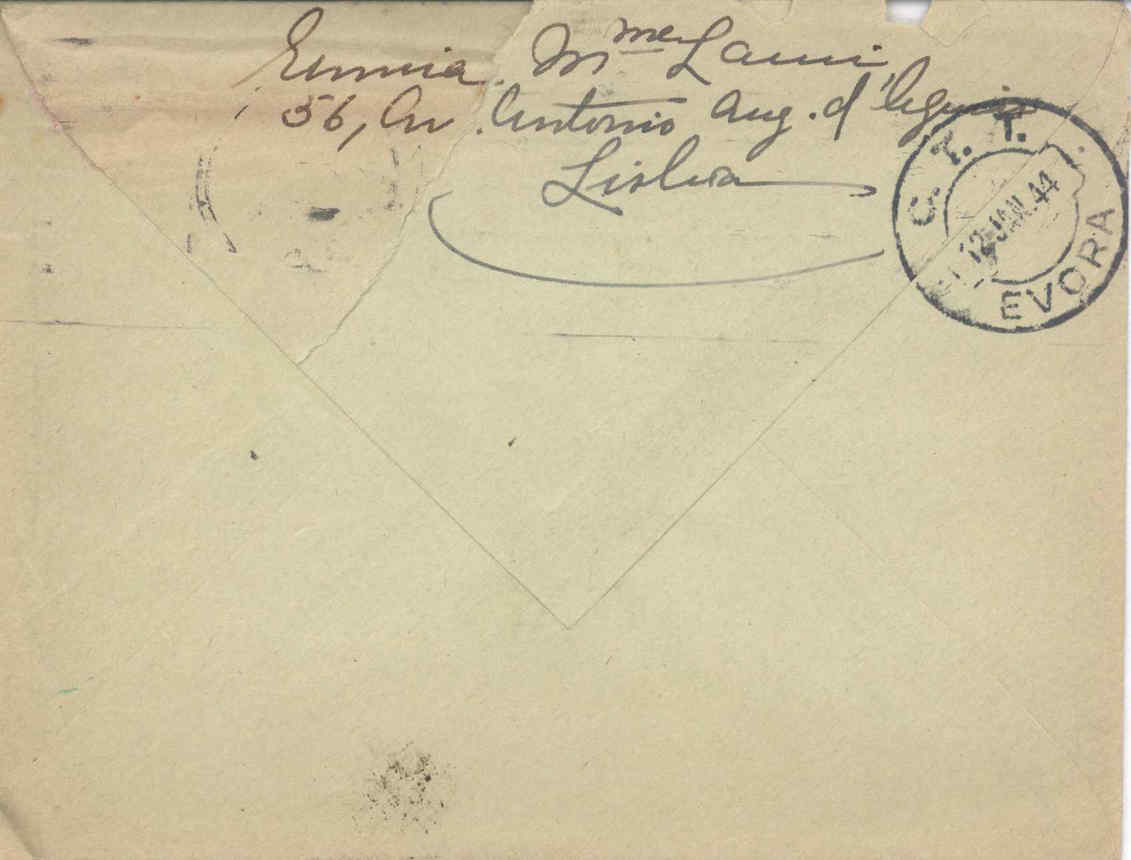 Mme Lami
56, Av. Antonio Aug. d'Aguiar
Lisboa
C. T. T.
12 JAN. 44
EVORA